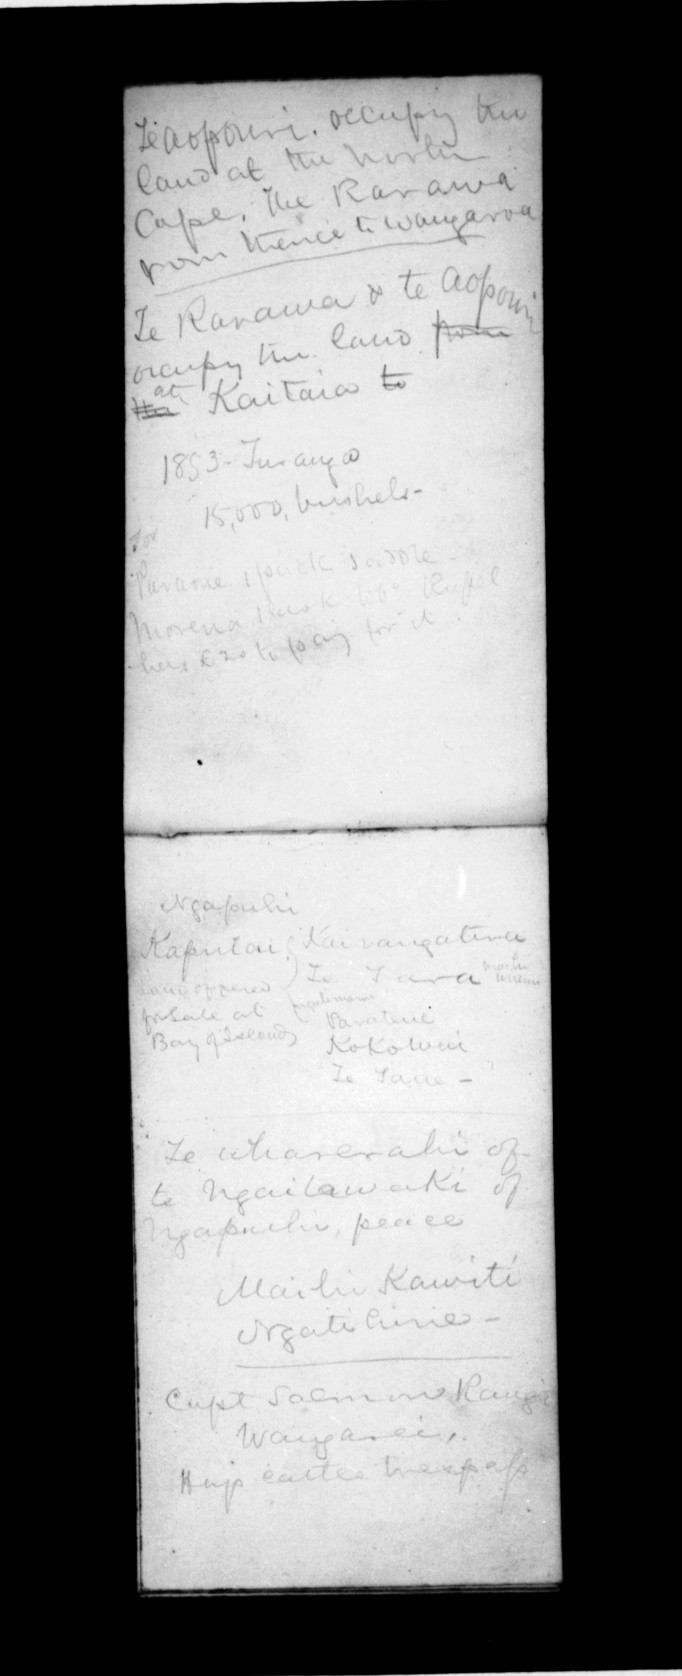 Te Aopouri. occupy the
land at the North
Cape. The Rarawa
from thence to Wangaroa
Te Rarawa & te Aopouri
occupy the land from
the at Kaitaia to
1853 - Turanga
15,000, bushels -
For
Paraone 1 pack saddle -
Morena
has £20 to pay for it.
Ngapuhi
Kaputai Kairangatira
Te Tara Maihi
Land offered
for Sale at
Paratene
Bay of Islands
Kokowai
Te Tane -
Te Wharerahi of
te Ngaitawaki of
Ngapuhi, peace
Maihi Kawiti
Ngatihine -
Capt Salmon
Wangarei,
cattle trespass